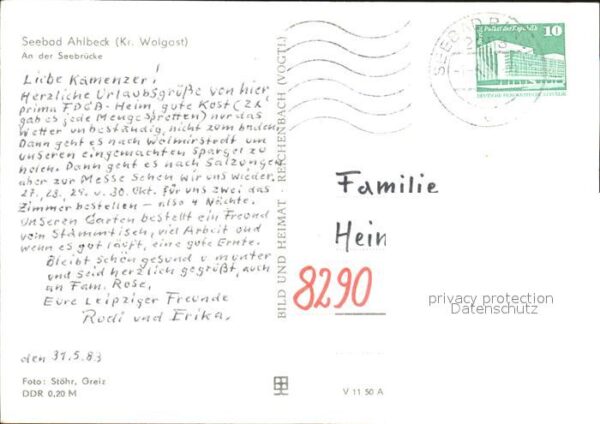 Seebad Ahlbeck (Kr. Wolgast)
An der Seebrücke
Liebe Kamenzer!
Herzliche Urlaubsgrüße von hier
prima FDGB-Heim, gute Kost (z.K.
gab es jede Menge Sprotten) nur das
Wetter unbeständig, nicht zum baden.
Dann geht es nach Wolmirstedt um
unseren eingemachten Spargel zu
holen. Dann geht es nach Salzungen
aber zur Messe sehen wir uns wieder.
27., 28., 29. u. 30. Okt. für uns zwei das
Zimmer bestellen – also 4 Nächte.
Unseren Garten bestellt ein Freund
vom Stammtisch, viel Arbeit und
wenn es gut läuft, eine gute Ernte.
Bleibt schön gesund u. munter
und seid herzlich gegrüßt, auch
an Fam. Rose,
Eure Leipziger Freunde
Rudi und Erika.
den 31.5.83
Foto: Stöhr, Greiz
DDR 0,20 M
BILD UND HEIMAT · REICHENBACH (VOGTL)
V 11 50 A
SEEBAD
10
Familie
Hein
8290
privacy protection
Datenschutz